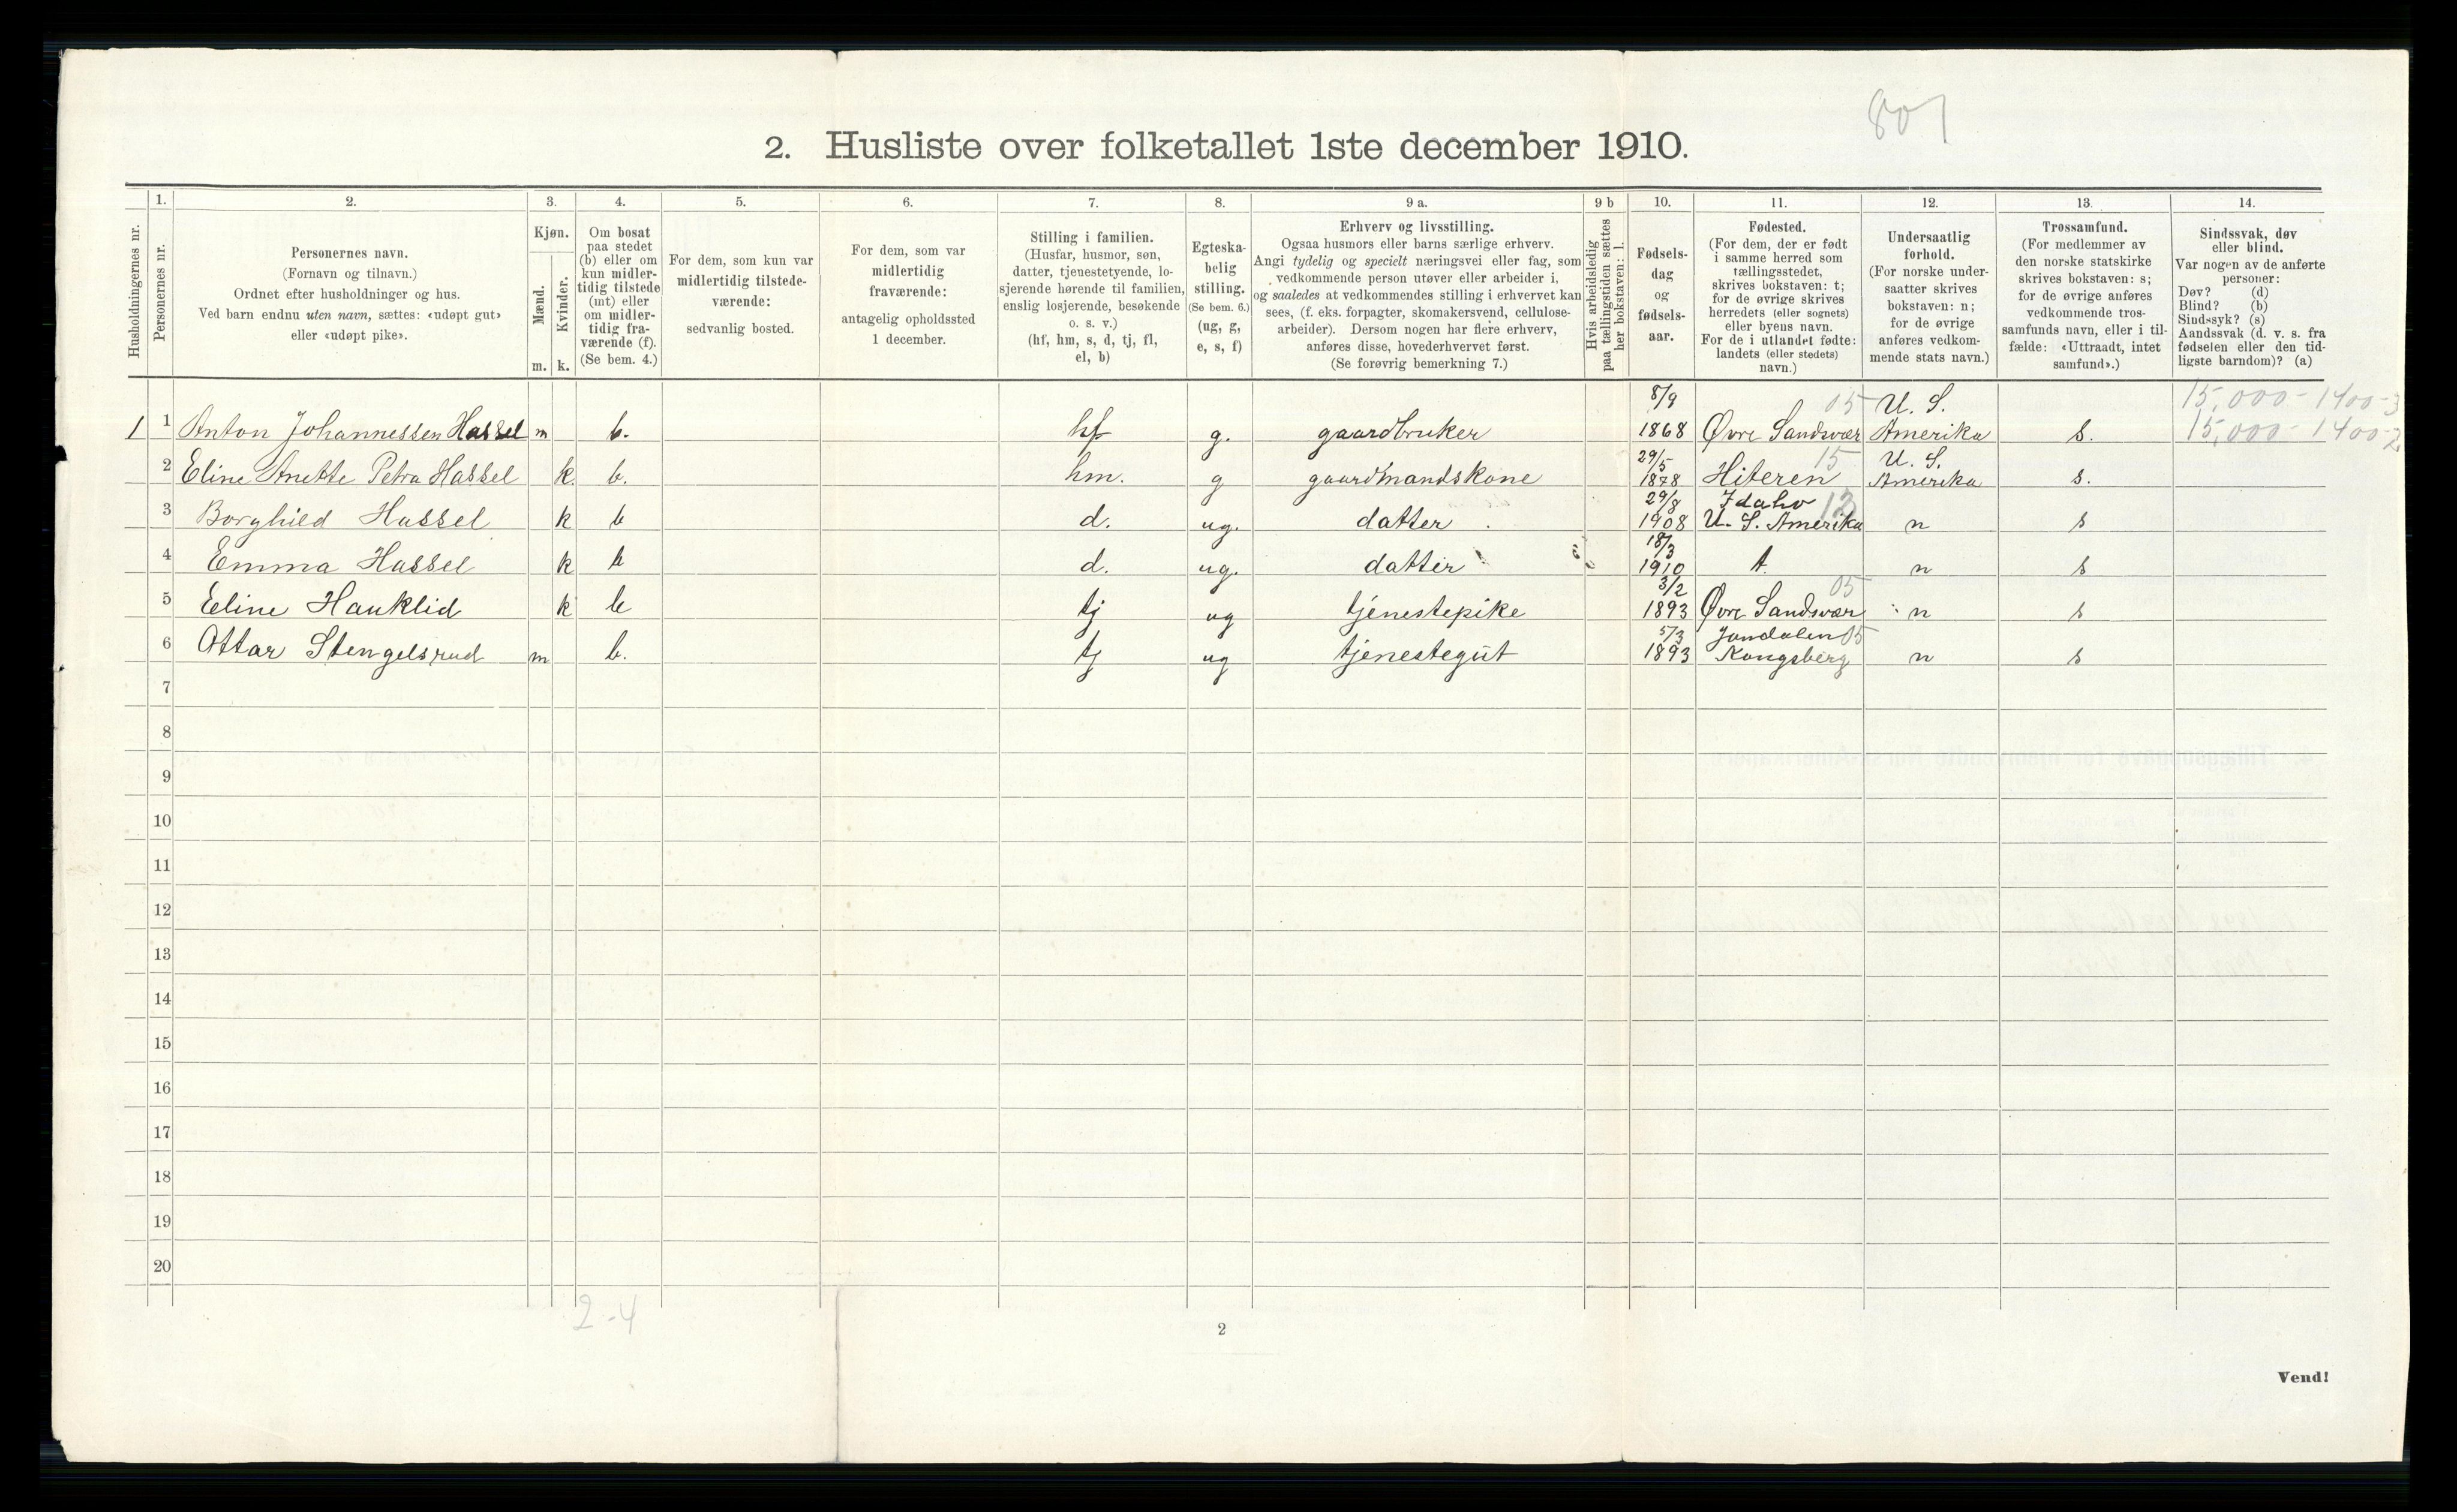 801
2. Husliste over folketallet 1ste december 1910.
Husholdningernes nr.
1.
Personernes nr.
2.
Personernes navn.
(Fornavn og tilnavn.)
Ordnet efter husholdninger og hus.
Ved barn endnu uten navn, sættes: «udøpt gut»
eller «udøpt pike».
3.
Kjøn.
Mænd.
Kvinder.
m. k.
4.
Om bosat
paa stedet
(b) eller om
kun midler-
tidig tilstede
(mt) eller
om midler-
tidig fra-
værende (f).
(Se bem. 4.)
5.
For dem, som kun var
midlertidig tilstede-
værende:
sedvanlig bosted.
6.
For dem, som var
midlertidig
fraværende:
antagelig opholdssted
1 december.
7.
Stilling i familien.
(Husfar, husmor, søn,
datter, tjenestetyende, lo-
sjerende hørende til familien,
enslig losjerende, besøkende
o. s. v.)
(hf, hm, s, d, tj, fl,
el, b)
8.
Egteska-
belig
stilling.
(Se bem. 6.)
(ug, g,
e, s, f)
9 a.
Erhverv og livsstilling.
Ogsaa husmors eller barns særlige erhverv.
Angi tydelig og specielt næringsvei eller fag, som
vedkommende person utøver eller arbeider i,
og saaledes at vedkommendes stilling i erhvervet kan
sees, (f. eks. forpagter, skomakersvend, cellulose-
arbeider). Dersom nogen har flere erhverv,
anføres disse, hovederhvervet først.
(Se forøvrig bemerkning 7.)
9 b
Hvis arbeidsledig
paa tællingstiden sættes
her bokstaven: l.
10.
Fødsels-
dag
og
fødsels-
aar.
11.
Fødested.
(For dem, der er født
i samme herred som
tællingsstedet,
skrives bokstaven: t;
for de øvrige skrives
herredets (eller sognets)
eller byens navn.
For de i utlandet fødte:
landets (eller stedets)
navn.)
12.
Undersaatlig
forhold.
(For norske under-
saatter skrives
bokstaven: n;
for de øvrige
anføres vedkom-
mende stats navn.)
13.
Trossamfund.
(For medlemmer av
den norske statskirke
skrives bokstaven: s;
for de øvrige anføres
vedkommende tros-
samfunds navn, eller i til-
fælde: «Uttraadt, intet
samfund».)
14.
Sindssvak, døv
eller blind.
Var nogen av de anførte
personer:
Døv? (d)
Blind? (b)
Sindssyk? (s)
Aandssvak (d. v. s. fra
fødselen eller den tid-
ligste barndom)? (a)
8/9 05 U. S. 15,000 - 1400-3
1 1 Anton Johannessen Hassel m b. hf g. gaardbruker 1868 Øvre Sandsvær Amerika s. 15,000 - 1400-2
29/5 15 U. S.
2 Eline Anette Petra Hassel k. b. hm. g gaardmandskone 1878 Hiteren Amerika s.
29/8 Idaho 12
3 Borghild Hassel k b d. ug. datter 1908 U. S. Amerika n s
18/3
4 Emma Hassel k b d. ug. datter 1910 t. n s
3/2 05
5 Eline Hauklid k b tj ug tjenestepike 1893 Øvre Sandsvær n s
5/3 Jondalen 05
6 Ottar Stengelsrud m b. tj ug tjenestegut 1893 Kongsberg n s
7
8
9
10
11
12
13
14
15
16
17
18
19
20
2-4
2
Vend!